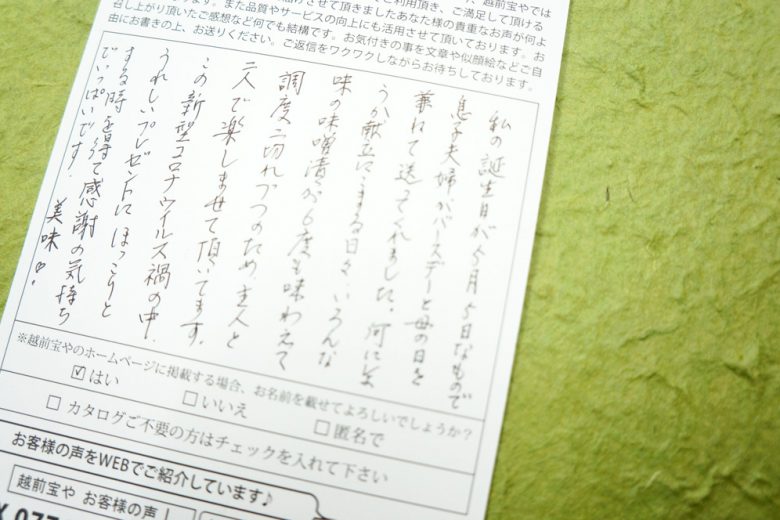 ご利用頂き、越前宝やでは
届けさせて頂きましたあなた様の貴重なお声が何よ
召し上がり頂いたご感想など何でも結構です。お気付きの事を文章や似顔絵などご自
ます。また品質やサービスの向上にも活用させて頂いております。お
由にお書きの上、お送りください。ご返信をワクワクしながらお待ちしております。
私の誕生日が5月5日なもので
息子夫婦がバースデーと母の日を
兼ねて送ってくれました。何にしよ
うか献立にこまる日々、いろんな
味の味噌漬が6度も味わえて
調度二切れづつのため、主人と
二人で楽しませて頂いてます。
この新型コロナウイルス禍の中、
うれしいプレゼントにほっこりと
する時を得て感謝の気持ち
でいっぱいです! 美味♡!
※越前宝やのホームページに掲載する場合、お名前を載せてよろしいでしょうか？
☑はい □いいえ □匿名で
□ カタログご不要の方はチェックを入れて下さい
お客様の声をWEBでご紹介しています♪
越前宝や お客様の声
077